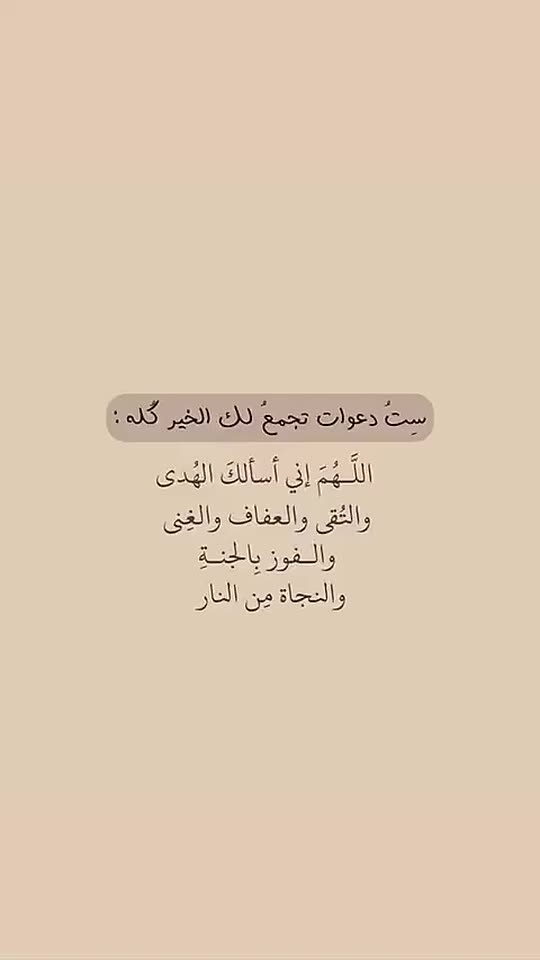 سِتُ دعوات تجمعُ لك الخير كُله :
اللَّـهُمَ إني أسألكَ الهُدى
والتُقى والعفاف والغِنى
والـفوز بِالجنـةِ
والنجاة مِن النار